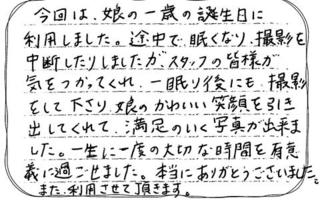 今回は、娘の一歳の誕生日に
利用しました。途中で眠くなり、撮影を
中断したりしましたが、スタッフの皆様が
気をつかってくれ、一眠り後にも、撮影
をして下さり、娘のかわいい笑顔を引き
出してくれて、満足のいく写真が出来ま
した。一生に一度の大切な時間を有意
義に過ごせました。本当にありがとうございました。
また、利用させて頂きます。